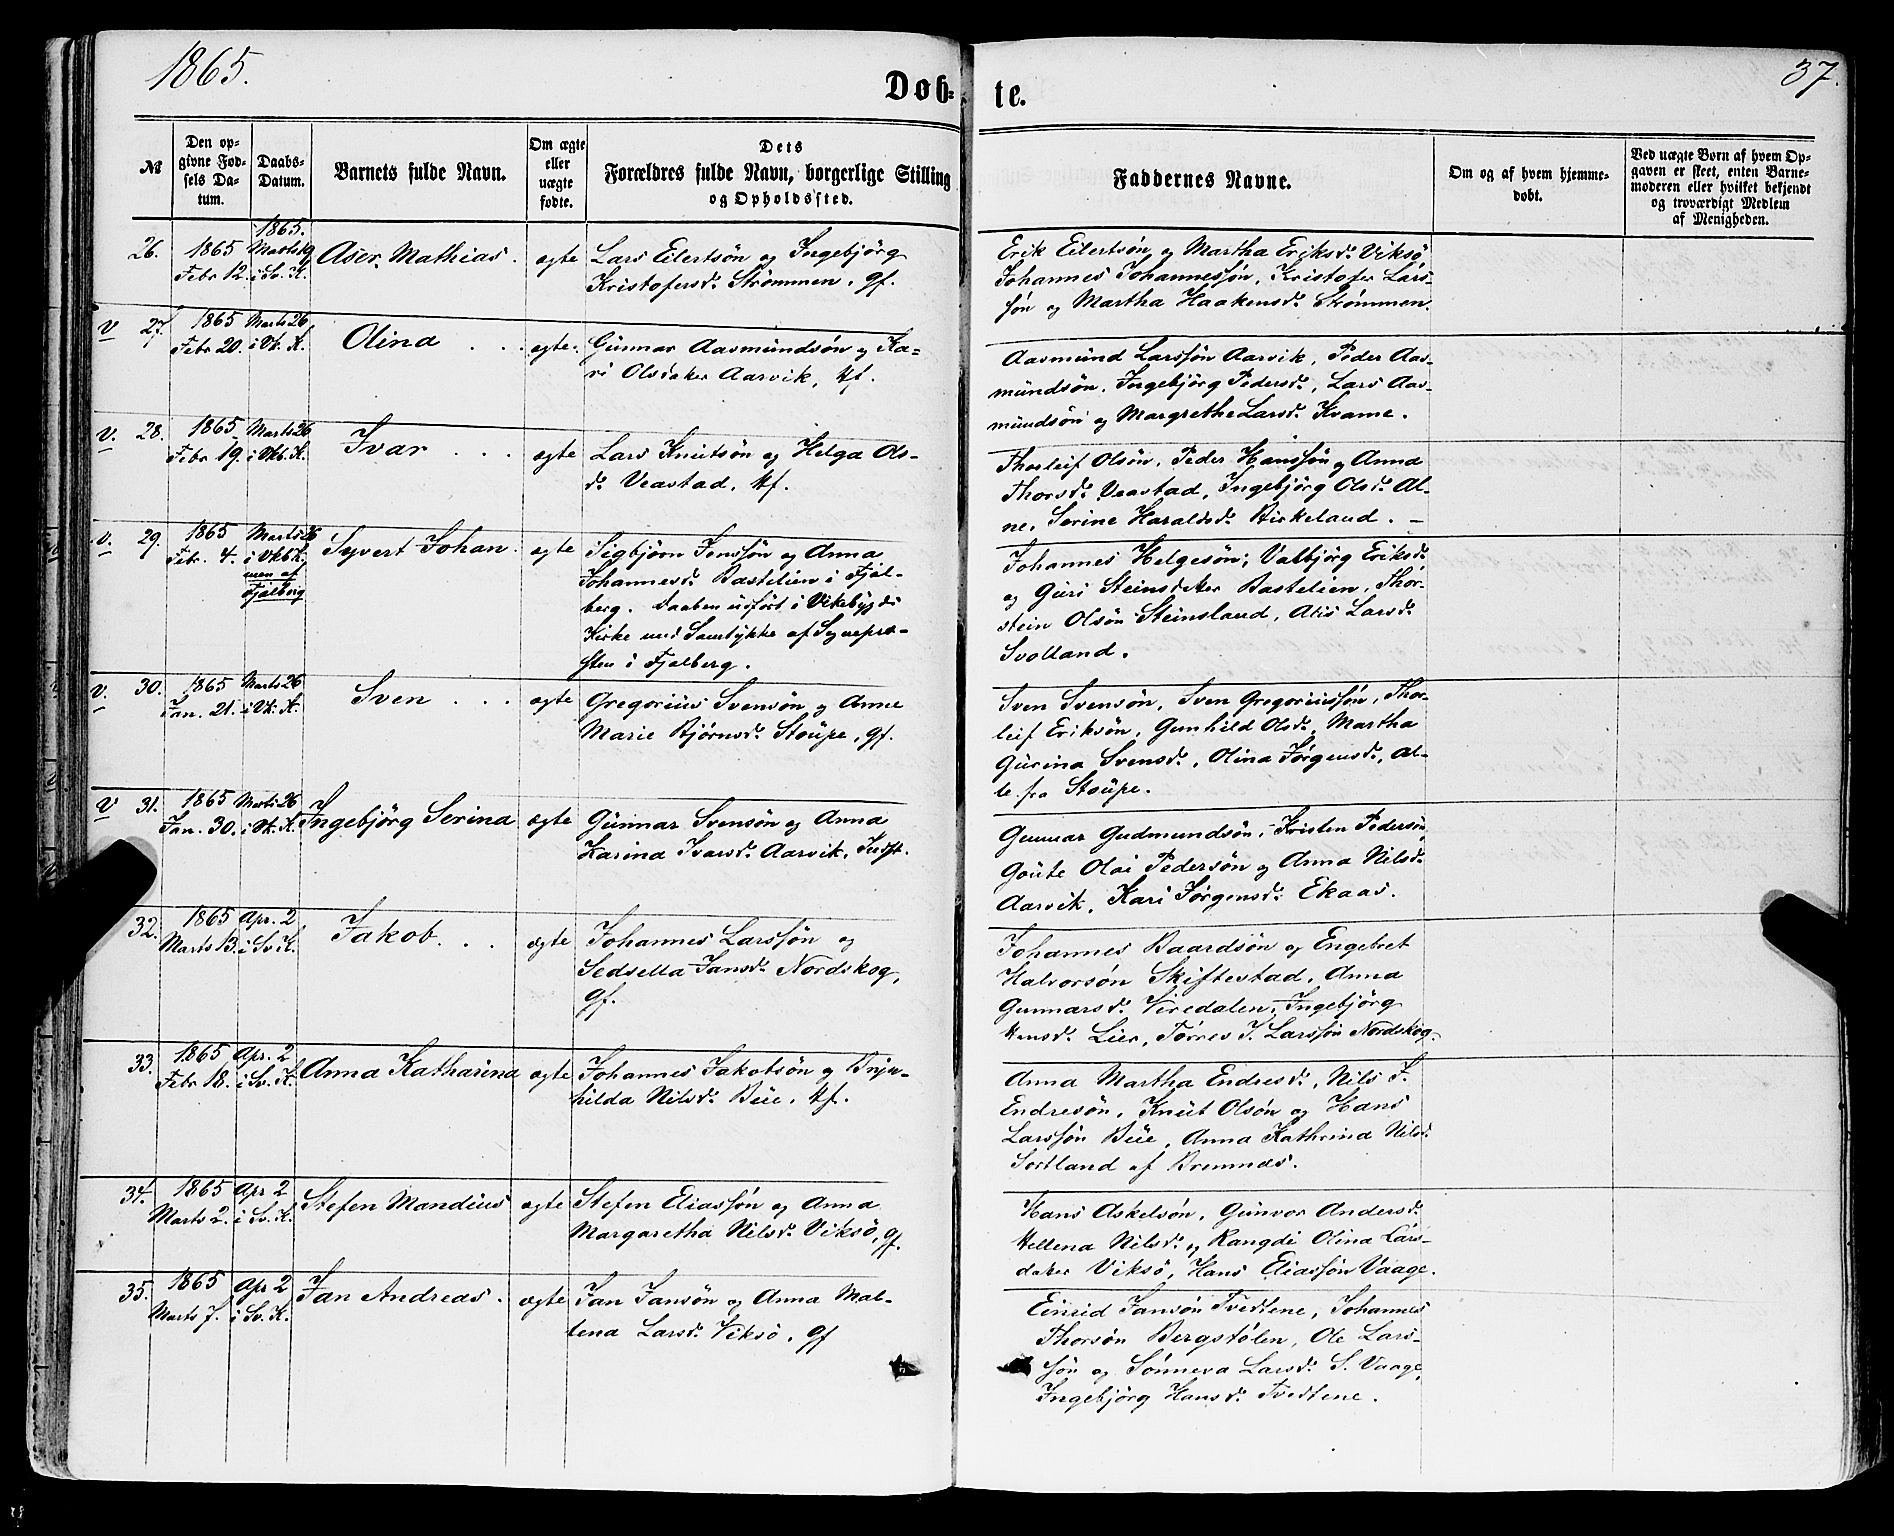 1865.
37.
Døb-
te.
№
Den op-
givne Fød-
sels Da-
tum.
Daabs-
Datum.
Barnets fulde Navn.
Om ægte
eller
uægte
fødte.
Dets
Forældres fulde Navn, borgerlige Stilling
og Opholdssted.
Faddernes Navne.
Om og af hvem hjemme-
døbt.
Ved uægte Børn af hvem Op-
gaven er skeet, enten Barne-
moderen eller hvilket bekjendt
og troværdigt Medlem
af Menigheden.
26.
1865
Febr 12.
1865.
Marts 19
i Sv. K.
Aser Mathias.
ægte
Lars Eilertsön og Ingebjörg
Kristofersd. Strømmen. gf.
Erik Eilertsön og Martha Eriksd. Viksö
Johannes Johannessön, Kristofer Lars-
sön og Martha Haakensd. Strømmen.
V 27.
1865
Febr 20.
Marts 26
i Vk. K.
Olina . . .
ægte.
Gunnar Aasmundsön og Ka-
ri Olsdater Aarvik, kf.
Aasmund Larssön Aarvik, Peder Aas-
mundsön, Ingebjörg Pedersd., Lars Aas-
mundsön og Margrethe Larsd. Kvame.
V. 28.
1865
Febr 19.
Marts 26
i Vkb. K.
Ivar . . .
ægte
Lars Knutsön og Helga Ols-
d. Veastad. kf.
Thorleif Olsön. Peder Hanssön og Anna
Thorsd. Veastad, Ingebjörg Olsd. Al-
ne. Serine Haraldsd. Birkeland. –
V. 29.
1865
Febr. 4.
Marts 26
i Vkb K.
men af
Fjælberg
Syvert Johan.
ægte
Sigbjörn Jenssön og Anna
Johannesd. Bastelien i Fjæl-
berg. Daaben udført i Vikebygds
Kirke med Samtykke af Sognepræ-
sten i Fjælberg.
Johannes Helgesön, Valbjörg Eriksd.
og Guri Steinsdater Bastelien, Thor-
stein Olsön Steinsland, Atis Larsd.
Svolland.
V. 30.
1865
Jan. 21.
Marts 26
i Vk. K.
Sven . . .
ægte
Gregorius Svensön og Anne
Marie Bjørnsd. Stoupe, gf.
Sven Svensön, Sven Gregoriussön, Thor-
leif Eriksön, Gunhild Olsd. Martha
Gurina Svensd., Olina Jørgensd., al-
le fra Stoupe.
V 31.
1865
Jan. 30.
Marts 26
i Vk. K.
Ingebjörg Serina
ægte
Gunnar Svensön og Anna
Karina Ivarsd. Aarvik. Indst.
Gunnar Gudmundsön, Kristen Pedersön,
Goute Olai Pedersön og Anna Nilsd.
Aarvik, Kari Jørgensd. Ekaas.
32.
1865
Marts 13.
Apr. 2
i Sv K.
Jakob . . .
ægte
Johannes Larssön og
Sedsella Jansd. Nordskog,
gf.
Johannes Baardsön og Engebret
Halvorsön Skiftestad, Anna
Gunnarsd. Viredalen, Ingebjörg
Hansd. Lier, Tørres J. Larssön Nordskog.
33.
1865
Febr 18.
Apr. 2
i Sv. K.
Anna Katharina
ægte
Johannes Jakobsön og Brÿn-
hilda Nilsd. Büe. kf.
Anna Martha Endresd., Nils J.
Endresön, Knut Olsön og Hans
Larssön Büe, Anna Kathrina Nilsd.
Sortland af Bremnæs.
34.
1865
Marts 2.
Apr 2
i Sv. K.
Stefen Mandius
ægte
Stefen Eliassön og Anna
Margaretha Nilsd. Viksö, gf.
Hans Askelsön, Gunvor Andersd.
Hellena Nilsd. og Rangdi Olina Lars-
dater Viksö, Hans Eliassön Vaage.
35.
1865
Marts 7.
Apr 2
i Sv. K.
Jan Andreas.
ægte
Jan Jansön og Anna Mal-
lena Larsd. Viksö, gf
Einrid Jansön Tvedtene, Johannes
Thorsön Bergstølen, Ole Lars-
sön og Sönneva Larsd. S. Vaage,
Ingebjörg Hansd. Tvedtene.